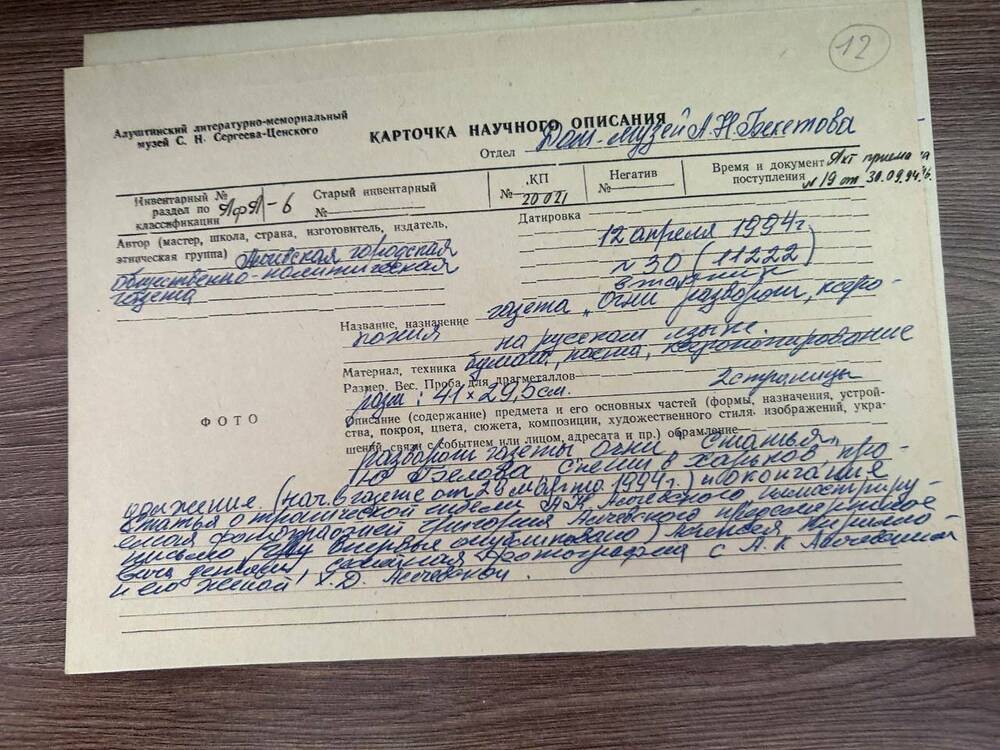 12
Алуштинский литературно-мемориальный
музей С. Н. Сергеева-Ценского
КАРТОЧКА НАУЧНОГО ОПИСАНИЯ
Отдел Дом-музей А.Н. Бекетова
Инвентарный №
раздел по
классификации АфА-6
Старый инвентарный
№
КП
№ 20021
Негатив
№
Время и документ
поступления
Акт приема
№ 19 от 30.09.94г.
Автор (мастер, школа, страна, изготовитель, издатель,
этническая группа) Алчевская городская
общественно-политическая
газета
Датировка
12 апреля 1994г.
№ 30 (11222)
вторник
Название, назначение газета „Огни" разворот, ксеро-
копия на русском языке.
Материал, техника бумага, паста, ксерокопирование
Размер. Вес. Проба для драгметаллов
разм: 41 × 29,5см. 2 страницы
ФОТО
Описание (содержание) предмета и его основных частей (формы, назначения, устрой-
ства, покроя, цвета, сюжета, композиции, художественного стиля изображений, укра-
шений, связи с событием или лицом, адресата и пр.) обрамление
разворот газеты „Огни" Статья
Ю Белова в Харьков про-
должение. (нач. в газете от 26 марта 1994г.) и окончание
Статья о трагической гибели А.К. Алчевского иллюстриру-
емая фотографией Григория Алчевского предсмертное
письмо впервые опубликовано) Алексея Кирилло-
вича фотография с А.К Алчевским
и его женой Х.Д. Алчевской.